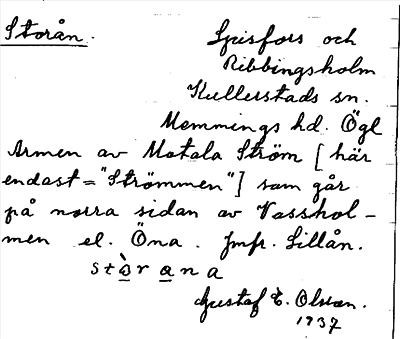 Storån.
Spisfors och
Ribbingsholm
Kullerstads sn.
Memmings hd. Ögl
Armen av Motala Ström [här
endast = "Strömmen"] som går
på norra sidan av Vasshol-
men el. Öna. Jmfr. Lillån.
stò̱ra̱na
Gustaf E. Olsson.
1937